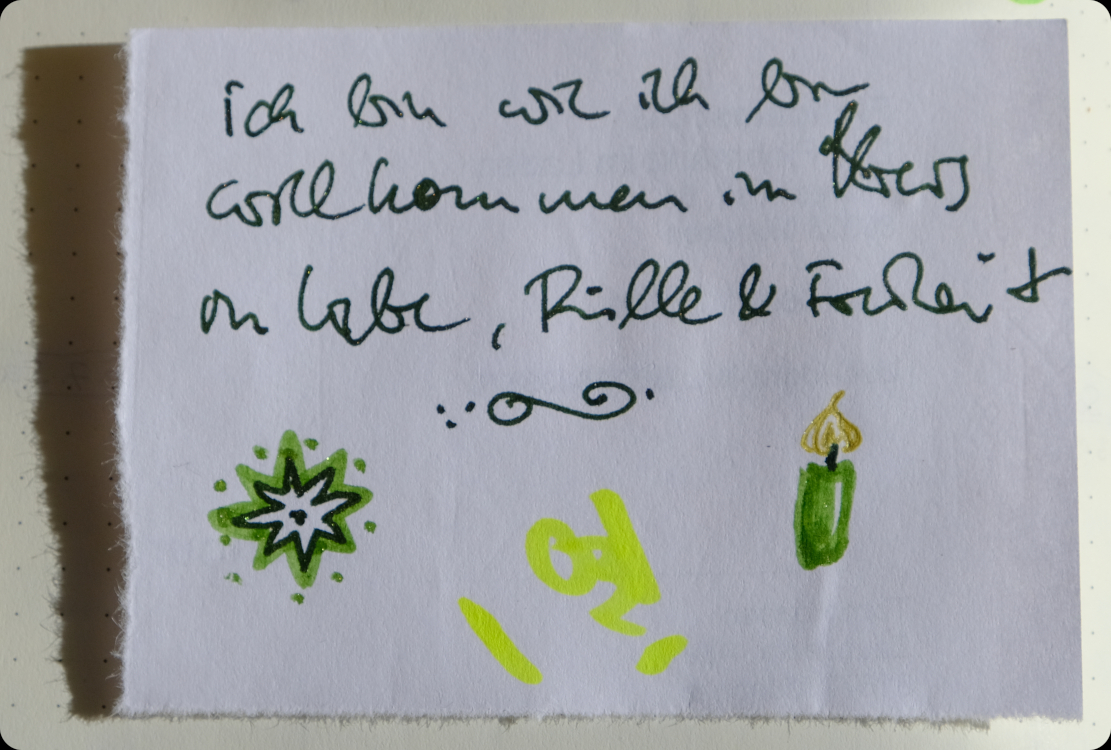 ich bin wie ich bin
willkommen im Kreis
in Liebe, Fülle & Freiheit